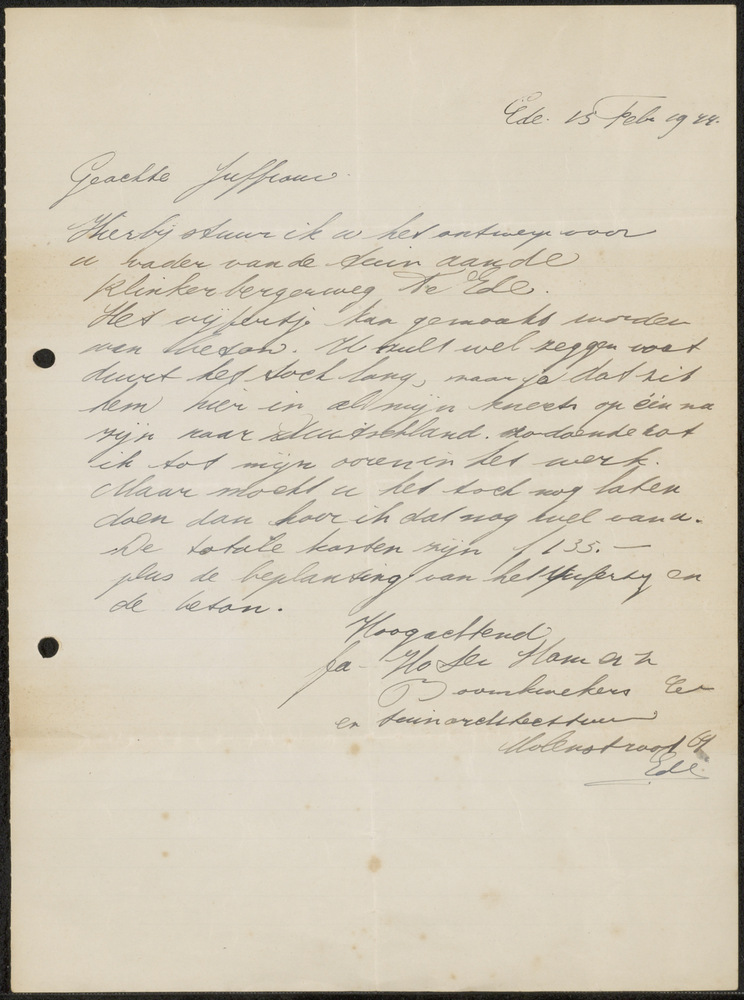 Ede. 15 Feb. 1944.
Geachte Juffrouw
Hierbij stuur ik u het ontwerp voor
u vader van de tuin aan de
Klinkerbergerweg Te Ede.
Het vijvertje kan gemaakt worden
van beton. U zult wel zeggen wat
duurt het toch lang, maar ja dat zit
hem hier in al mijn knechts op één na
zijn naar Duitschland. zodoende zot
ik tot mijn ooren in het werk.
Maar mocht u het toch nog laten
doen dan hoor ik dat nog wel van u.
De totale kosten zijn f 135.—
plus de beplanting van het vijvertj en
de beton.
Hoogachtend
fa-
Boomkwekers
en tuinarchitectuur
Molenstraat
Ede.